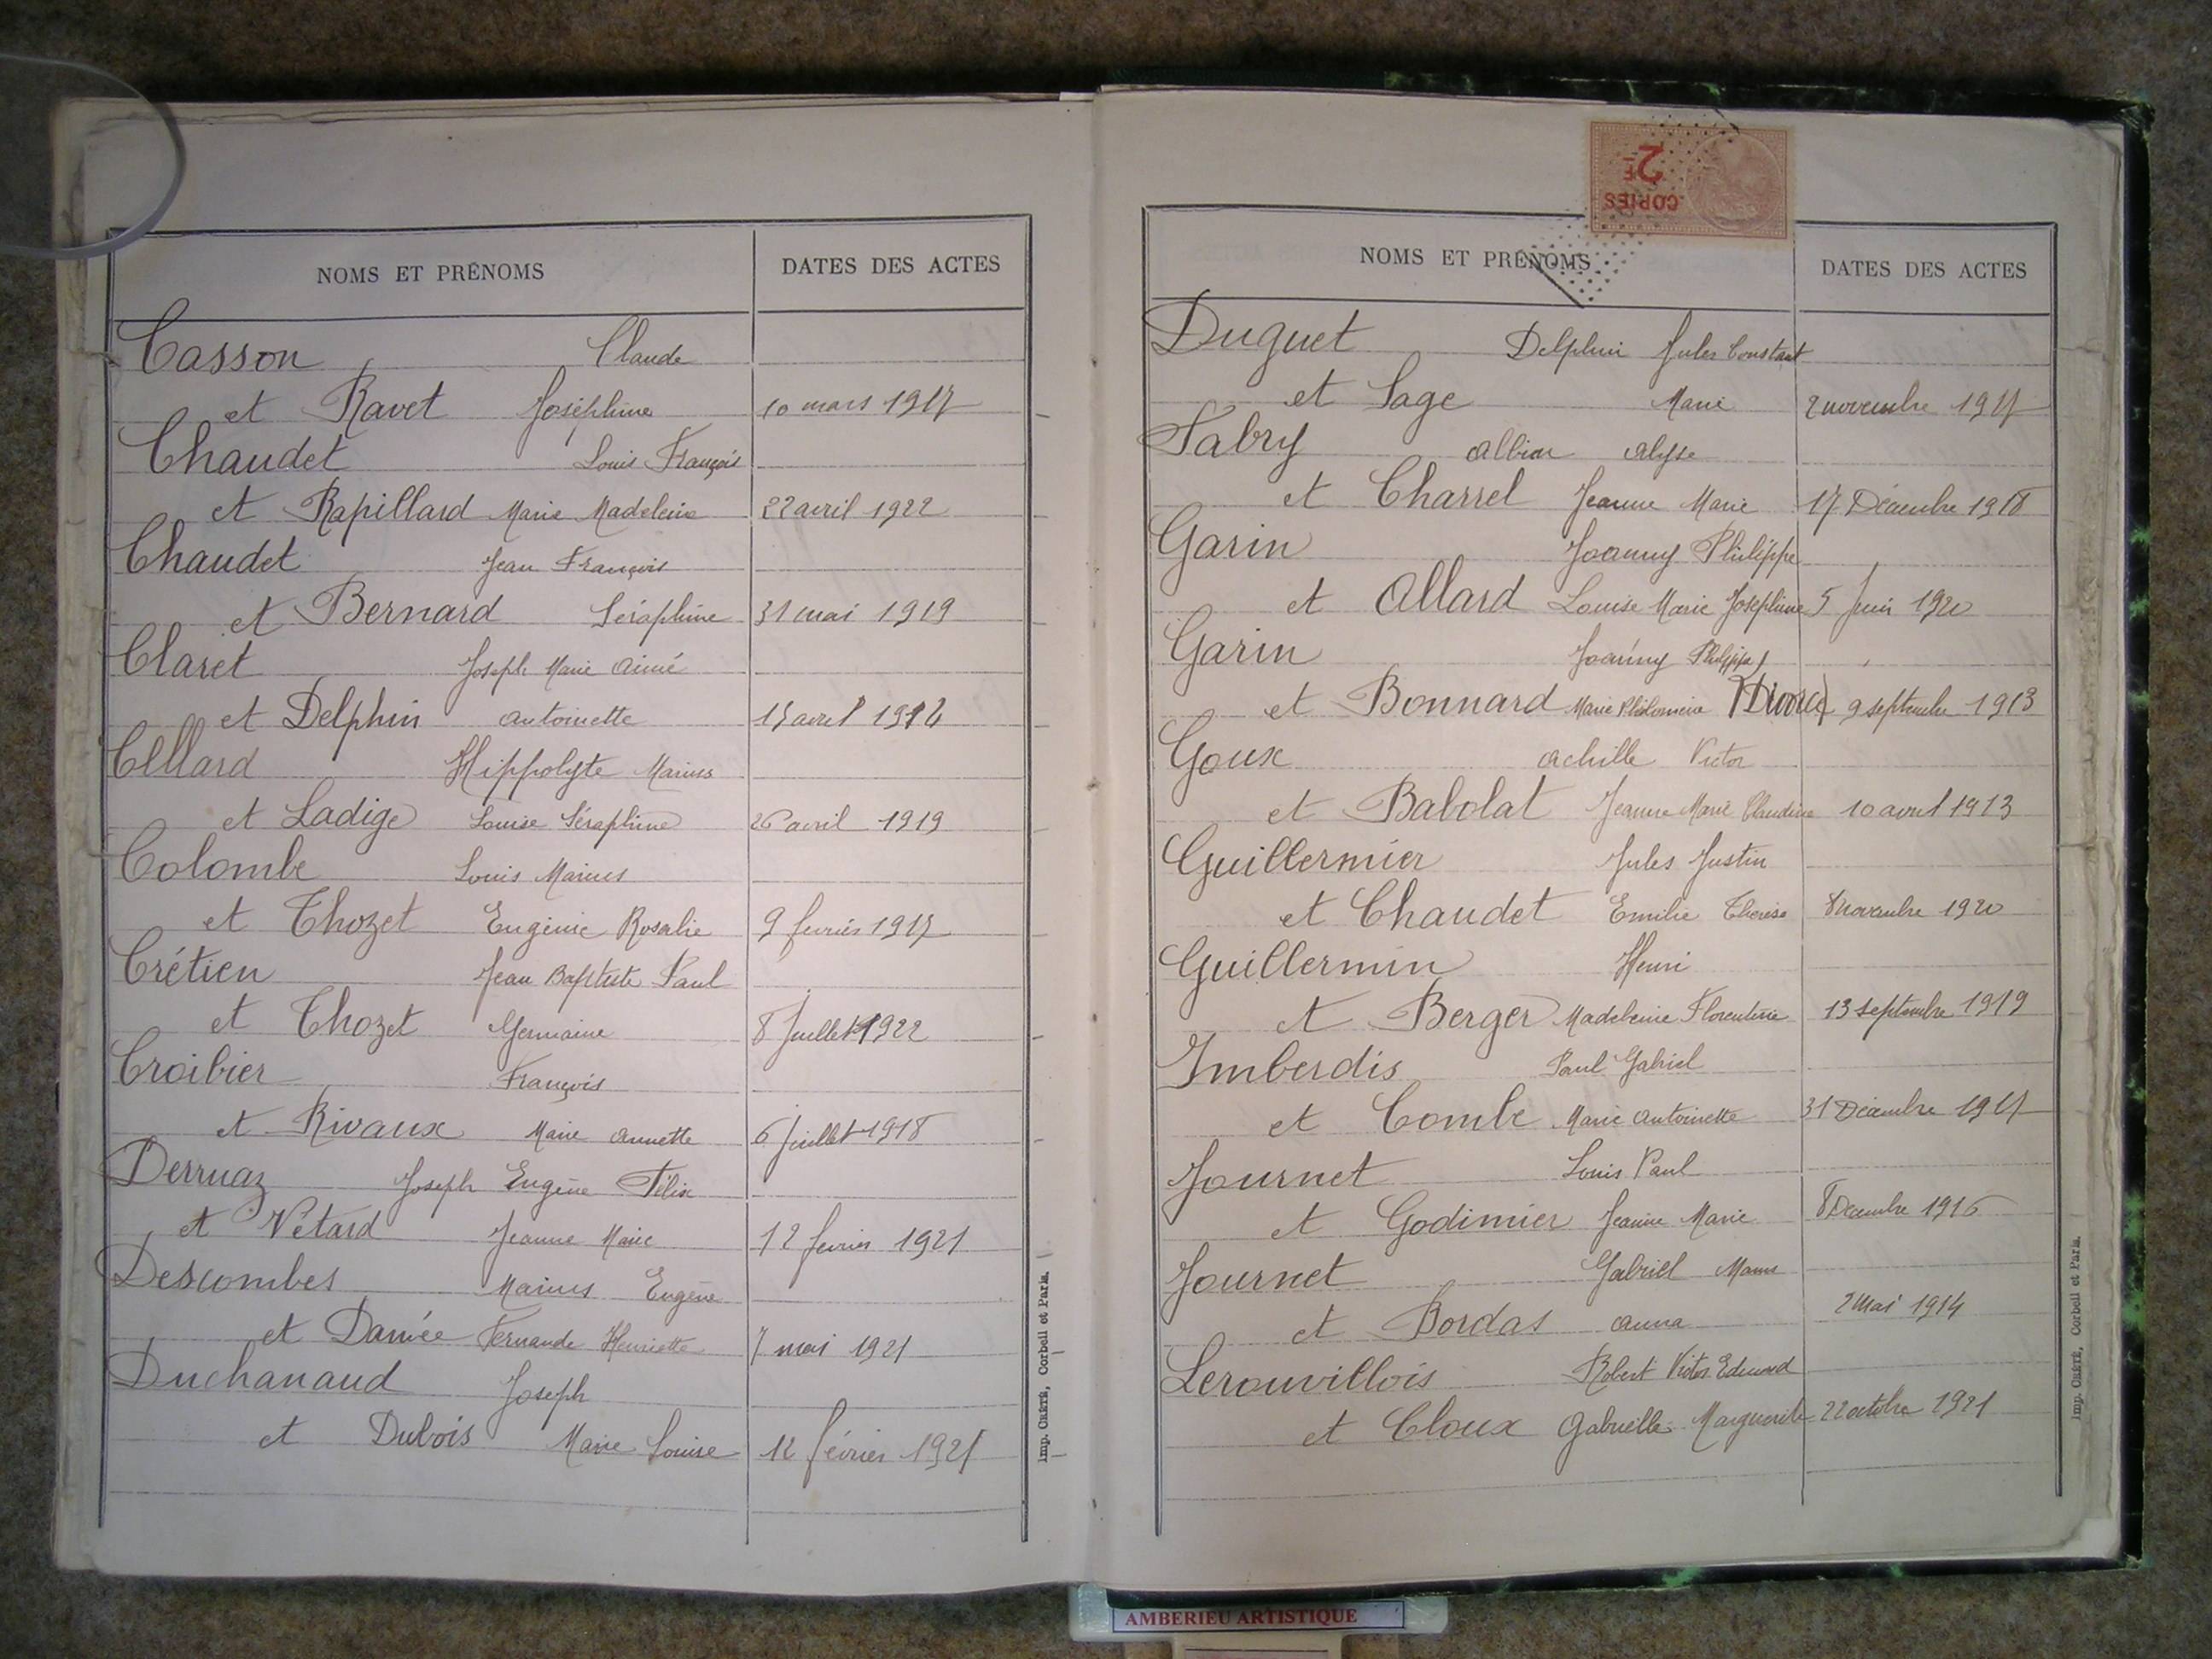 NOMS ET PRÉNOMS DATES DES ACTES
Casson Claude
et Ravet Joséphine 10 mars 1917
Chaudet Louis François
et Rapillard Marie Madeleine 22 avril 1922
Chaudet Jean François
et Bernard Séraphine 31 mai 1919
Claret Joseph Marie Aimé
et Delphin Antoinette avril
Collard Hippolyte Marius
et Ladige Louise Séraphine 26 avril 1919
Colombe Louis Marius
et Thozet Eugénie Rosalie 9 fevrier 1917
Crétien Jean Baptiste Paul
et Thozet Germaine 8 Juillet 1922
Croibier François
et Rivaux Marie Annette 6 Juillet 1918
Derruaz Joseph Eugène Félix
et Vétard Jeanne Marie 12 fevrier 1921
Descombes Marius Eugène
et Damée Fernande Henriette 7 mai 1921
Duchanaud Joseph
et Dubois Marie Louise 12 février 1921
Imp. CRÉTÉ, Corbeil et Paris.
COPIES
2F
NOMS ET PRÉNOMS DATES DES ACTES
Duguet Delphin Jules Constant
et Sage Marie 2 novembre 1917
Fabry Albion Alyse
et Charrel Jeanne Marie 17 Décembre 1918
Garin Joanny Philippe
et Allard Louise Marie Joséphine 5 Juin 1920
Garin Joanny Philippe
et Bonnard Marie Philomène (Divorce) 9 septembre 1913
Goux Achille Victor
et Babolat Jeanne Marie Claudine 10 avril 1913
Guillermier Jules Justin
et Chaudet Emilie Thérèse 8 novembre 1920
Guillermin Henri
et Berger Madeleine Florentine 13 septembre 1919
Imberdis Paul Gabriel
et Combe Marie Antoinette 31 Décembre 1917
Journet Louis Paul
et Godimier Jeanne Marie 8 Décembre 1916
Journet Gabriel Marius
et Bordas Anna 2 Mai 1914
Lerouvillois Robert Victor Edouard
et Cloux Gabrielle Marguerite 22 octobre 1921
Imp. CRÉTÉ, Corbeil et Paris.
AMBERIEU ARTISTIQUE